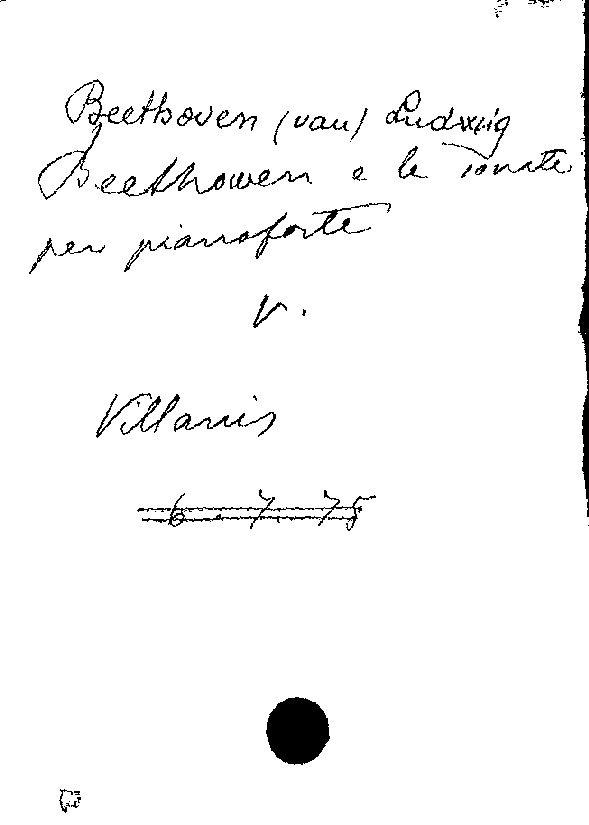 Beethoven (van) Ludwig
Beethowen e le sonate
per pianoforte
V.
Villanis
6.7.75